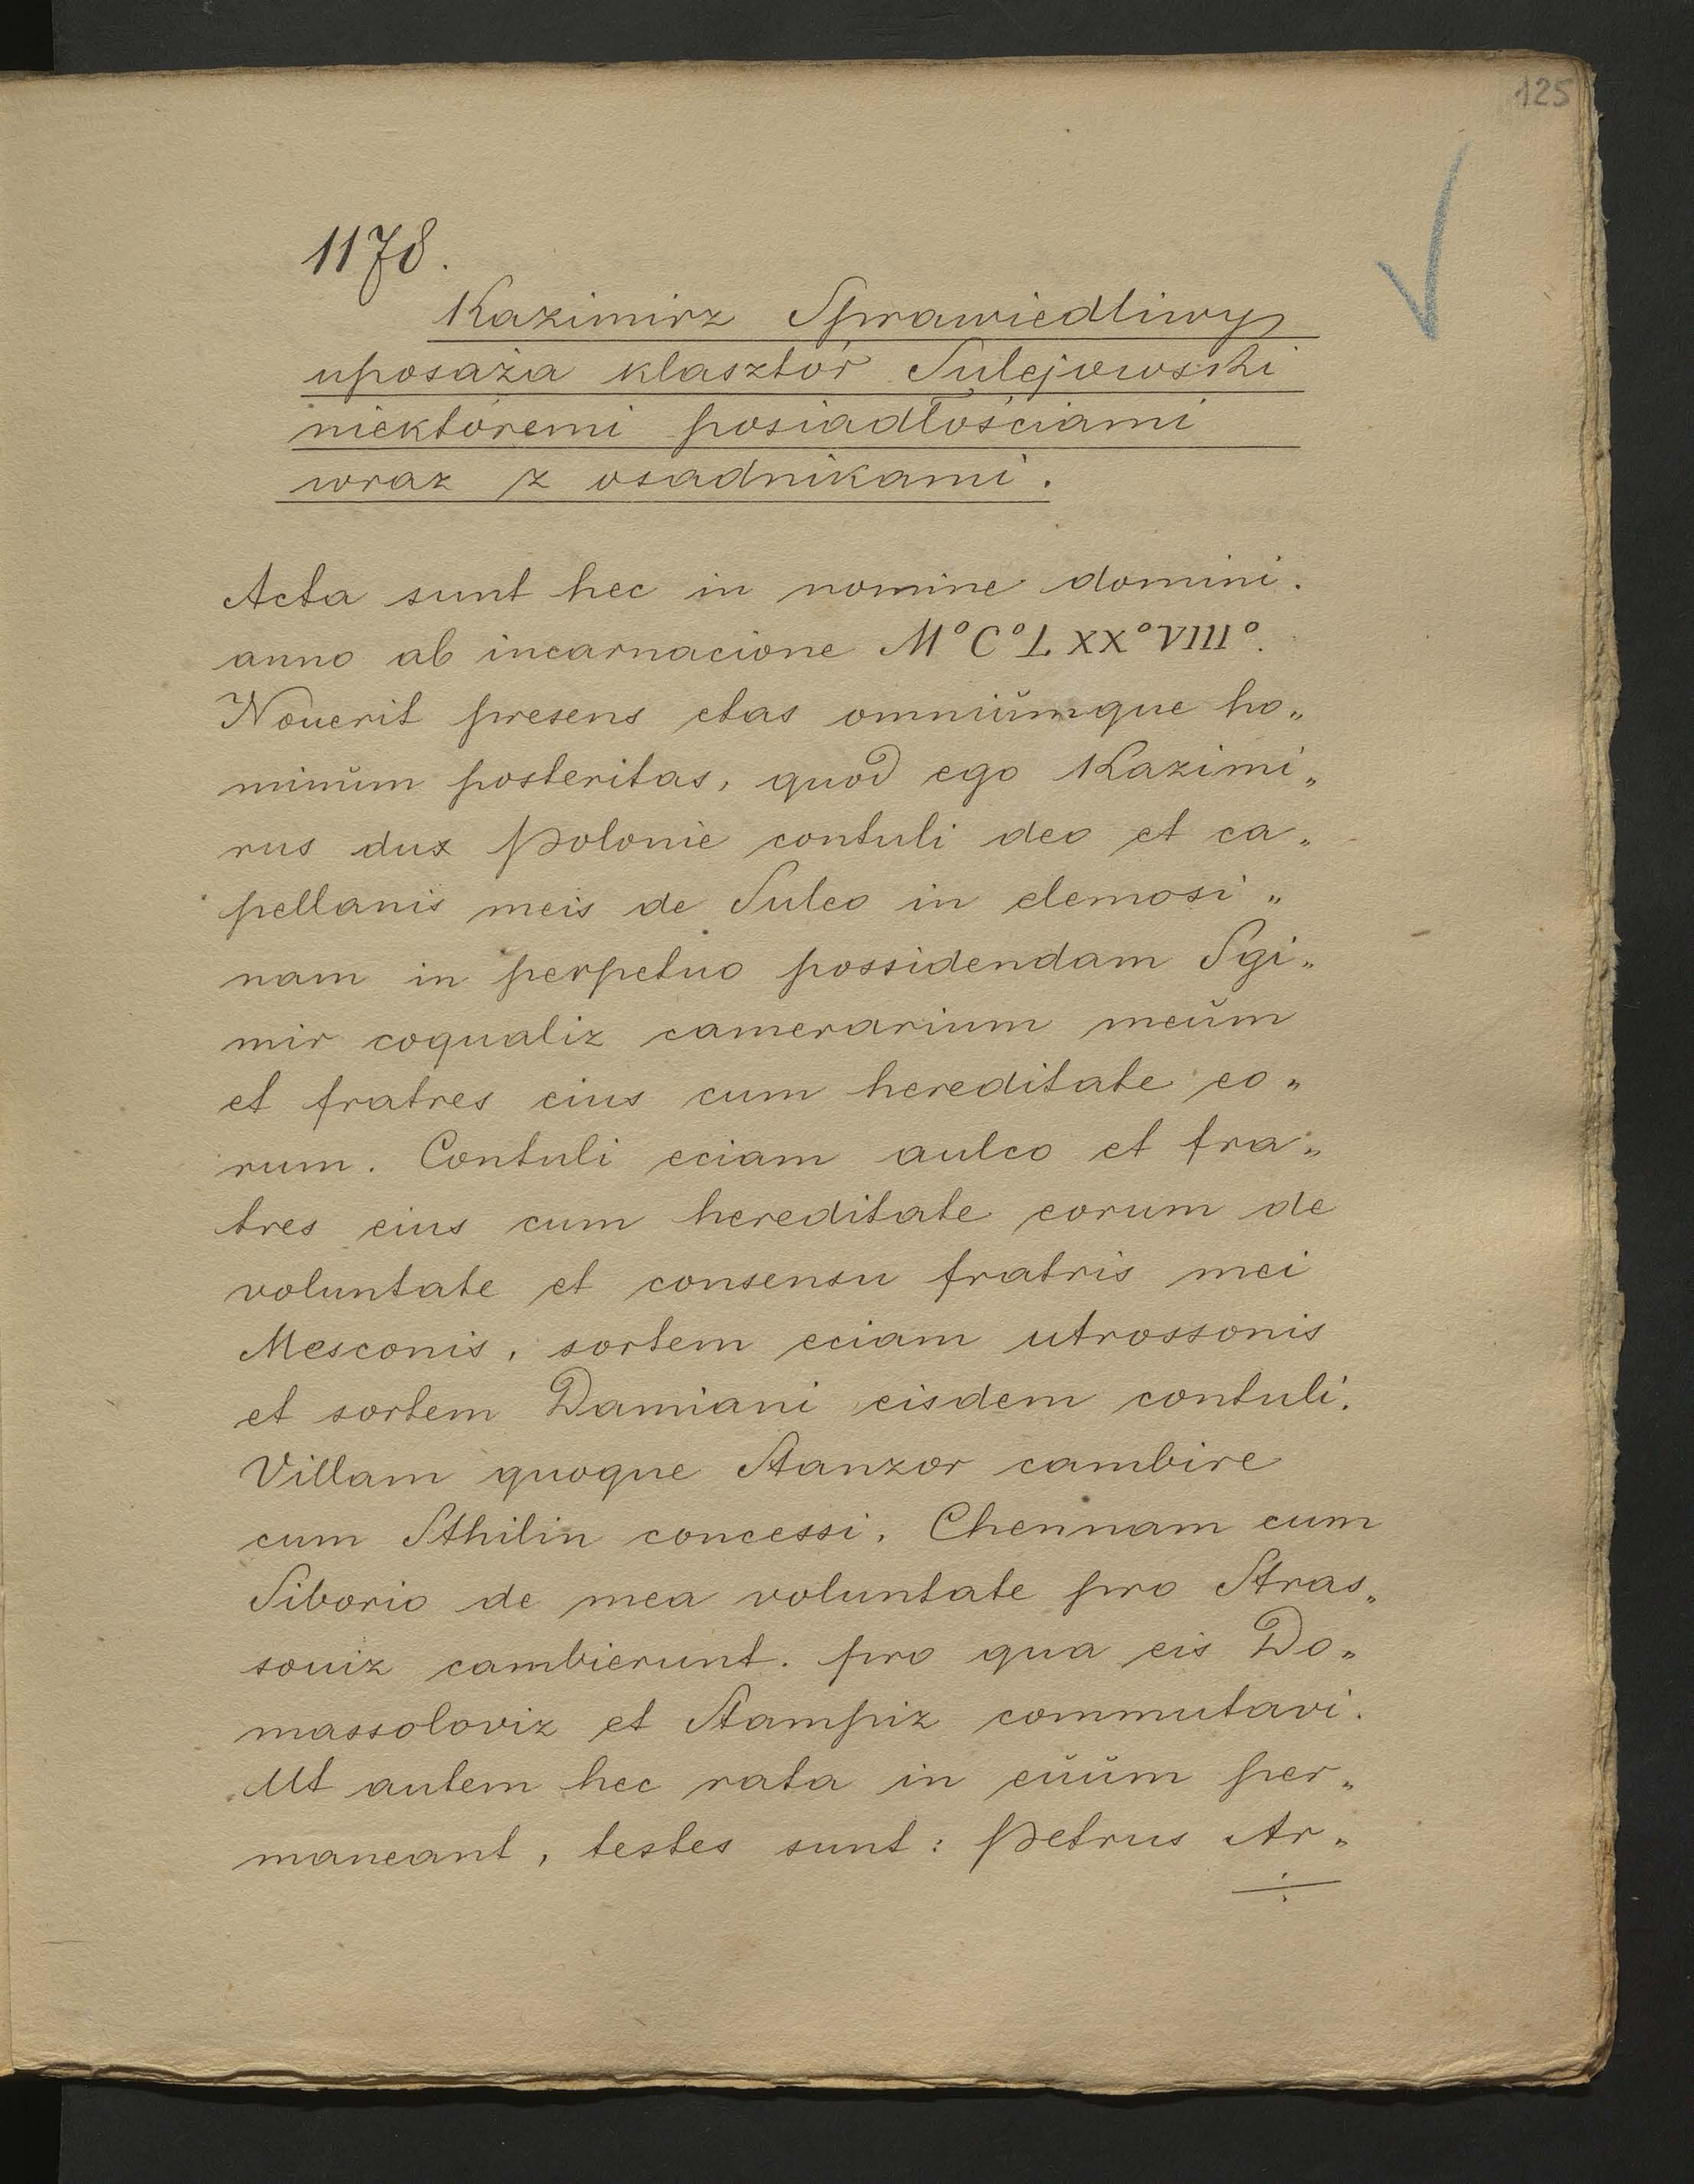 125
1178.
Kazimirz Sprawiedliwy
uposaża klasztór Sulejowski
niektóremi posiadłościami
wraz z osadnikami.
Acta sunt hec in nomine domini.
anno ab incarnacione M°C°LXX°VIII°.
Nouerit presens etas omniŭmque ho„
minŭm posteritas, quod ego Kazimi„
rus dux Polonie contuli deo et ca„
pellanis meis de Suleo in elemosi„
nam in perpetuo possidendam Sgi„
mir coqualiz camerarium meŭm
et fratres eius cum hereditate eo„
rum. Contuli eciam aulco et fra„
tres eius cum hereditate eorum de
voluntate et consensu fratris mei
Mesconis, sortem eciam utrossonis
et sortem Damiani eisdem contuli.
Villam quoque Stanzor cambire
cum Sthilin concessi. Chennam cum
Siborio de mea voluntate pro Stras„
souiz cambierunt. pro qua eis Do„
massoloviz et Stampiz commutavi.
Ut autem hec rata in eŭŭm per„
maneant, testes sunt: Petrus Ar„